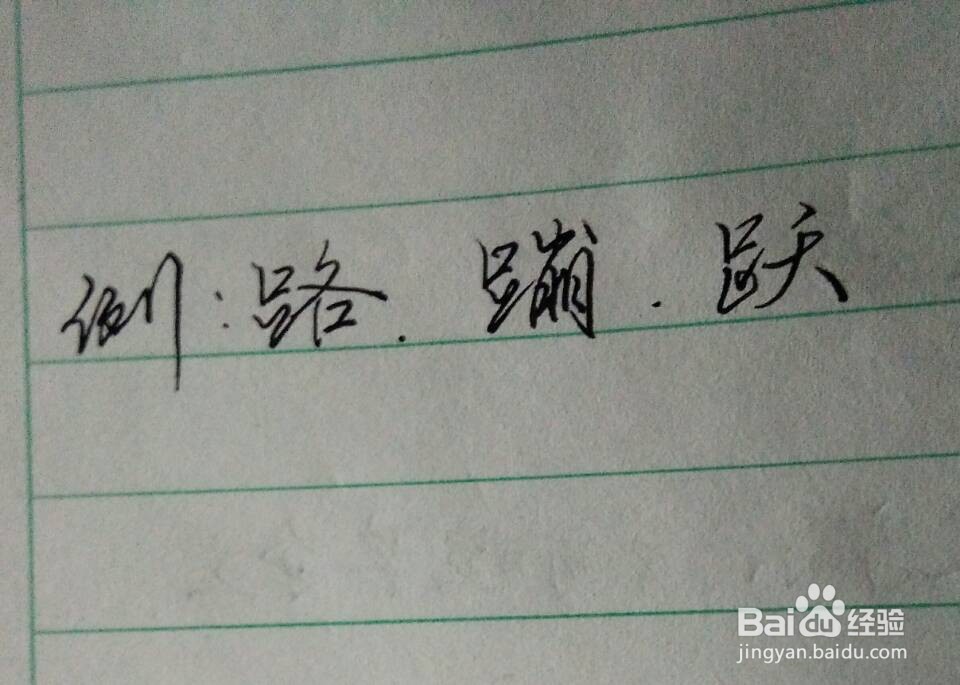 例：路．蹦．跃
Baidu经验
jingyan.baidu.com